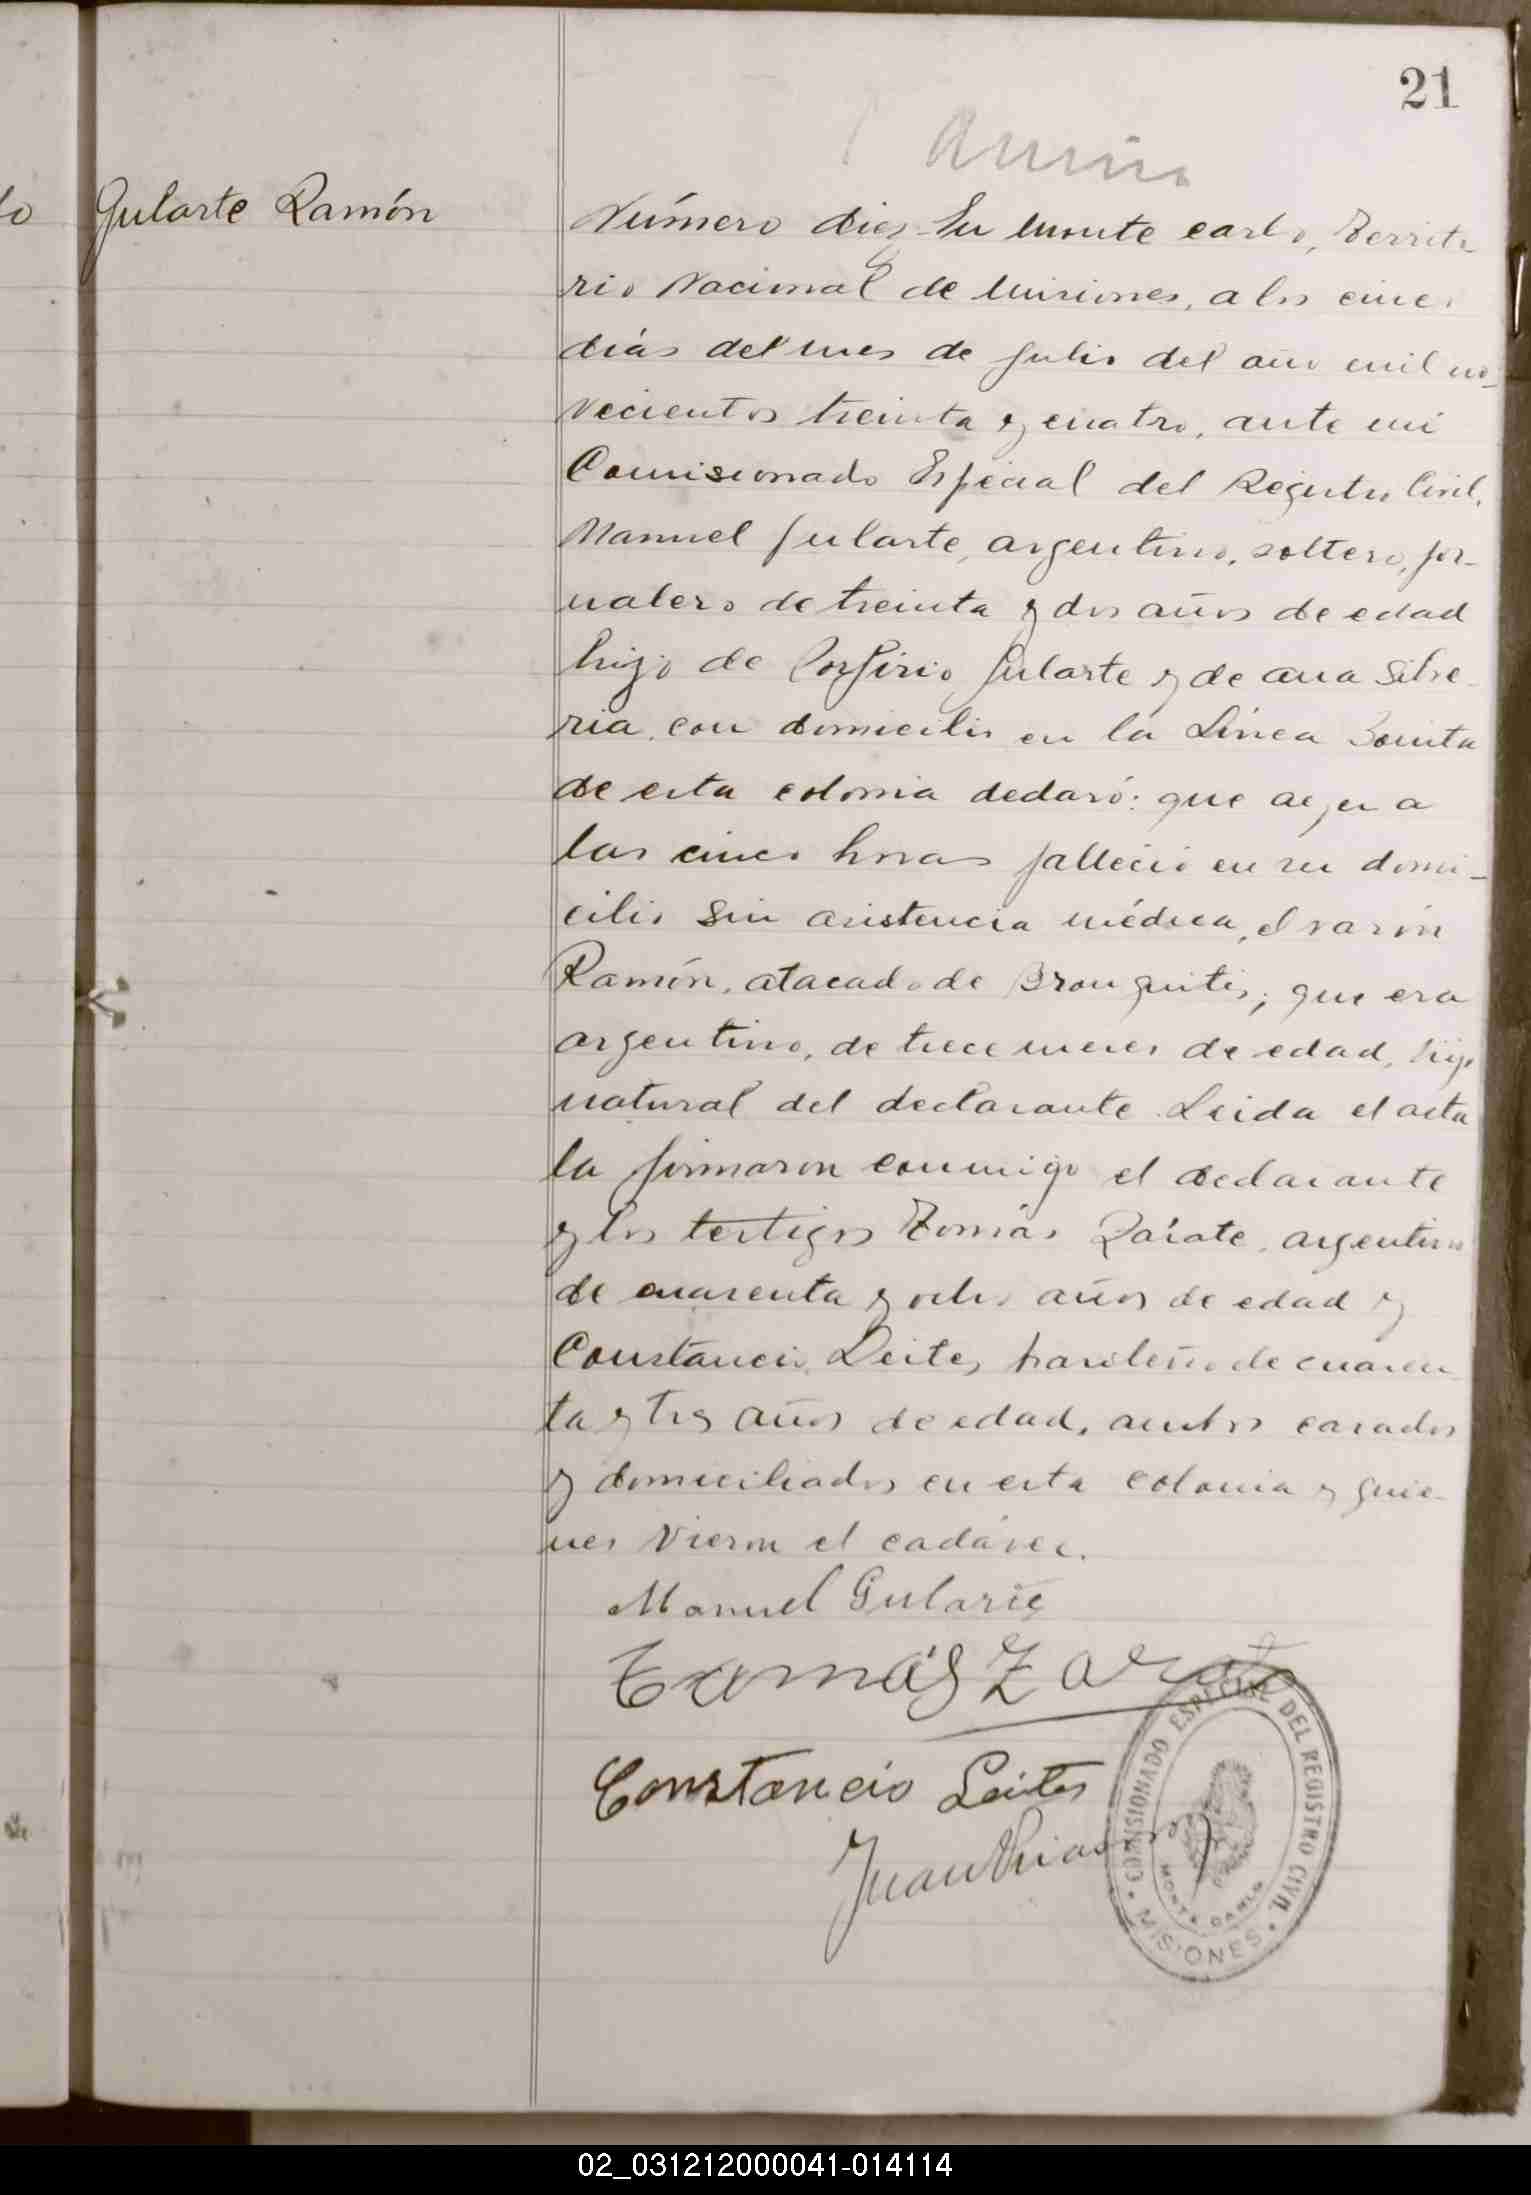 21
Gularte Ramón
Número diez En Monte Carlo, Territo
rio Nacional de Misiones, a los cinco
días del mes de Julio del año mil no-
vecientos treinta y cuatro, ante mi
Comisionado Especial del Registro Civil,
Manuel Gularte, argentino, soltero, jor-
nalero de treinta y dos años de edad
hijo de Porfirio Gularte y de Ana Silve-
ria, con domicilio en la Linea Bonita
de esta colonia declaró: que ayer a
las cinco horas falleció en su domi-
cilio sin asistencia médica, el varón
Ramón, atacado de Bronquitis; que era
argentino, de trece meses de edad, hijo
natural del declarante. Leida el acta
la firmaron conmigo el declarante
y los testigos Tomás Zárate, argentino
de cuarenta y ocho años de edad y
Constancio Leites, brasileño de cuaren
ta y tres años de edad, ambos casados
y domiciliados en esta colonia y quie-
nes vieron el cadáver.
Manuel Gularte
Tomás Zarate
Constancio Leites
Juan
COMISIONADO ESPECIAL DEL REGISTRO CIVIL
MONTE CARLO
MISIONES
02_031212000041-014114